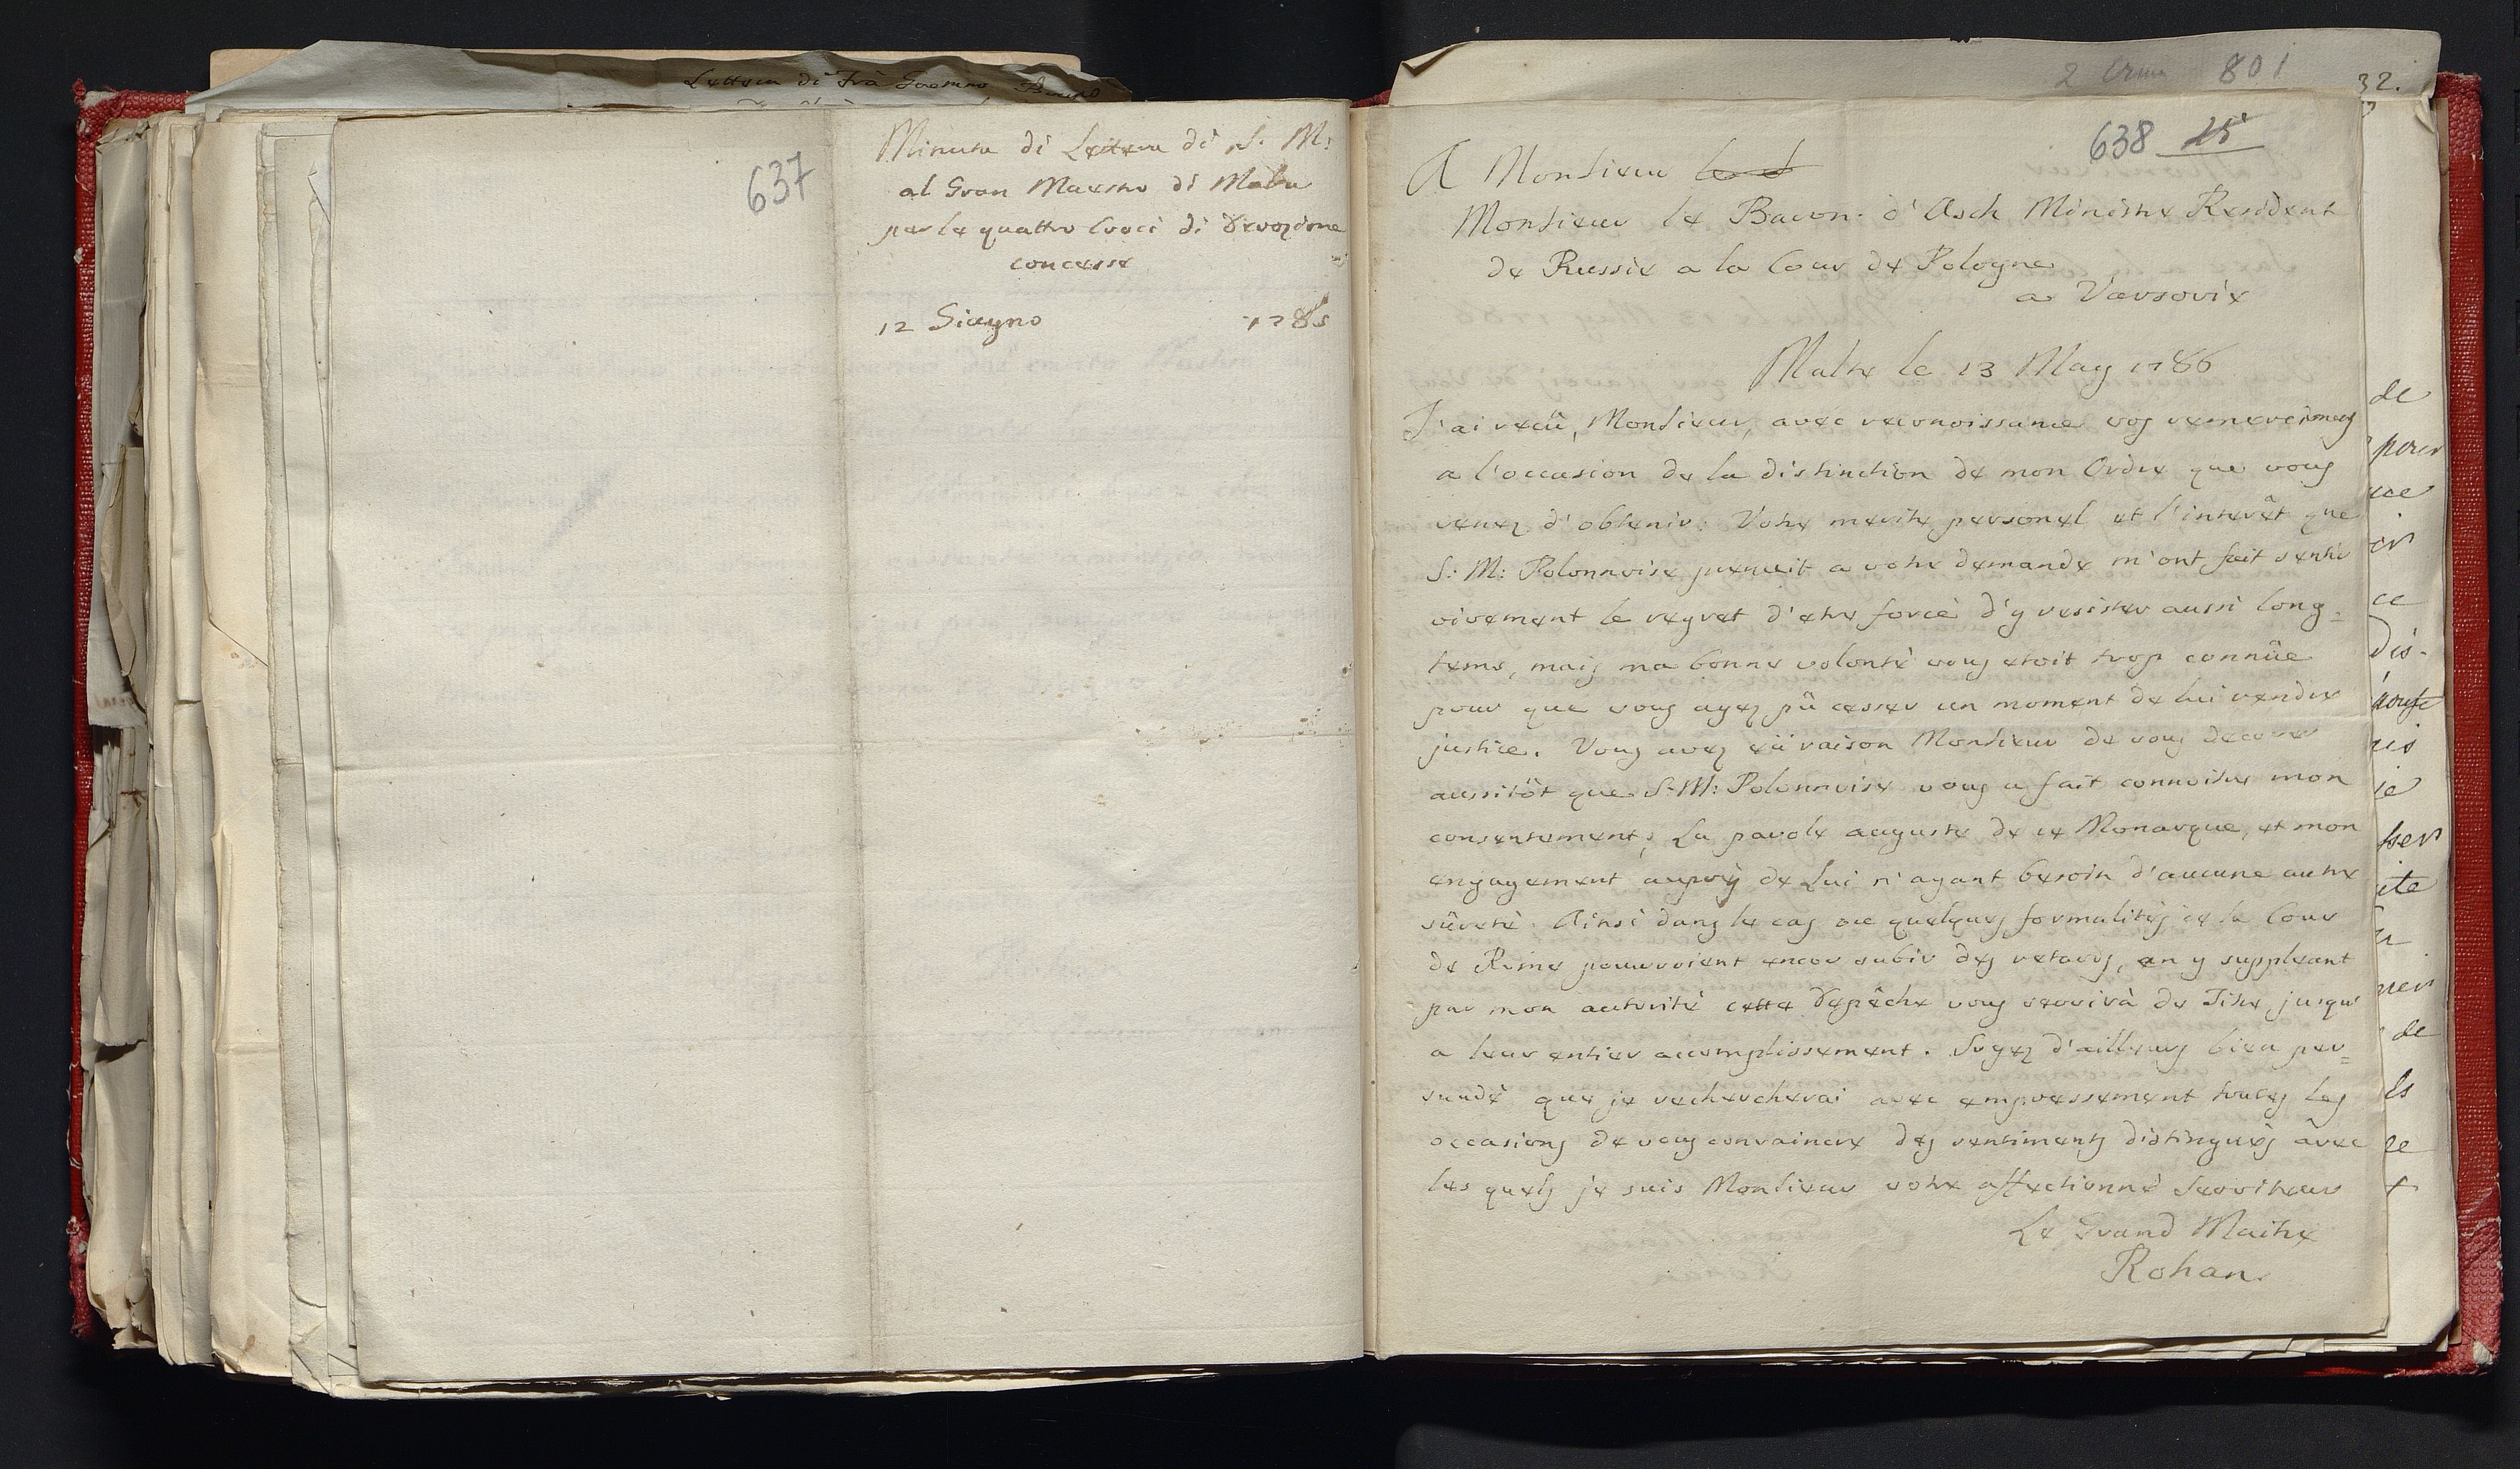 Lettera di Frà Gaetano
637
Minuta di Lettera di S. M:
al Gran Maestro di Malta
per le quattro Croci di devozione
concesse
12 Giugno 1785
2 801
32.
638 25
A Monsieur
Monsieur le Baron d'Asch Ministre Resident
de Russie a la Cour de Pologne
a Varsovie
Malte le 13 May 1786
J'ai reçû, Monsieur, avec reconoissance vos remercimens
a l'occasion de la distinction de mon Ordre que vous
venez d'obtenir. Votre merite personel et l'interêt que
S: M: Polonnoise prenoit a votre demande m'ont fait sentir
vivement le regret d'etre forcé d'y resister aussi long=
tems, mais ma bonne volonté vous etoit trop connüe
pour que vous ayez pû cesser un moment de lui rendre
justice. Vous avez eü raison Monsieur de vous decorer
aussitôt que S: M: Polonnoise vous a fait connoitre mon
consentement; La parole auguste de ce Monarque, et mon
engagement auprès de Lui n'ayant besoin d'aucune autre
sûreté. Ainsi dans le cas ou quelques formalités de la Cour
de Rome pourroient encor subir des retards, en y suppleant
par mon autorité cette depêche vous servirà de Titre jusqu'
a leur entier accomplissement. Soyez d'ailleurs bien per=
suadé que je rechercherai avec empressement toutes les
occasions de vous convaincre des sentiments distingués avec
les quels je suis Monsieur votre affectionné Serviteur
Le Grand Maitre
Rohan.
de
pour
dis-
de